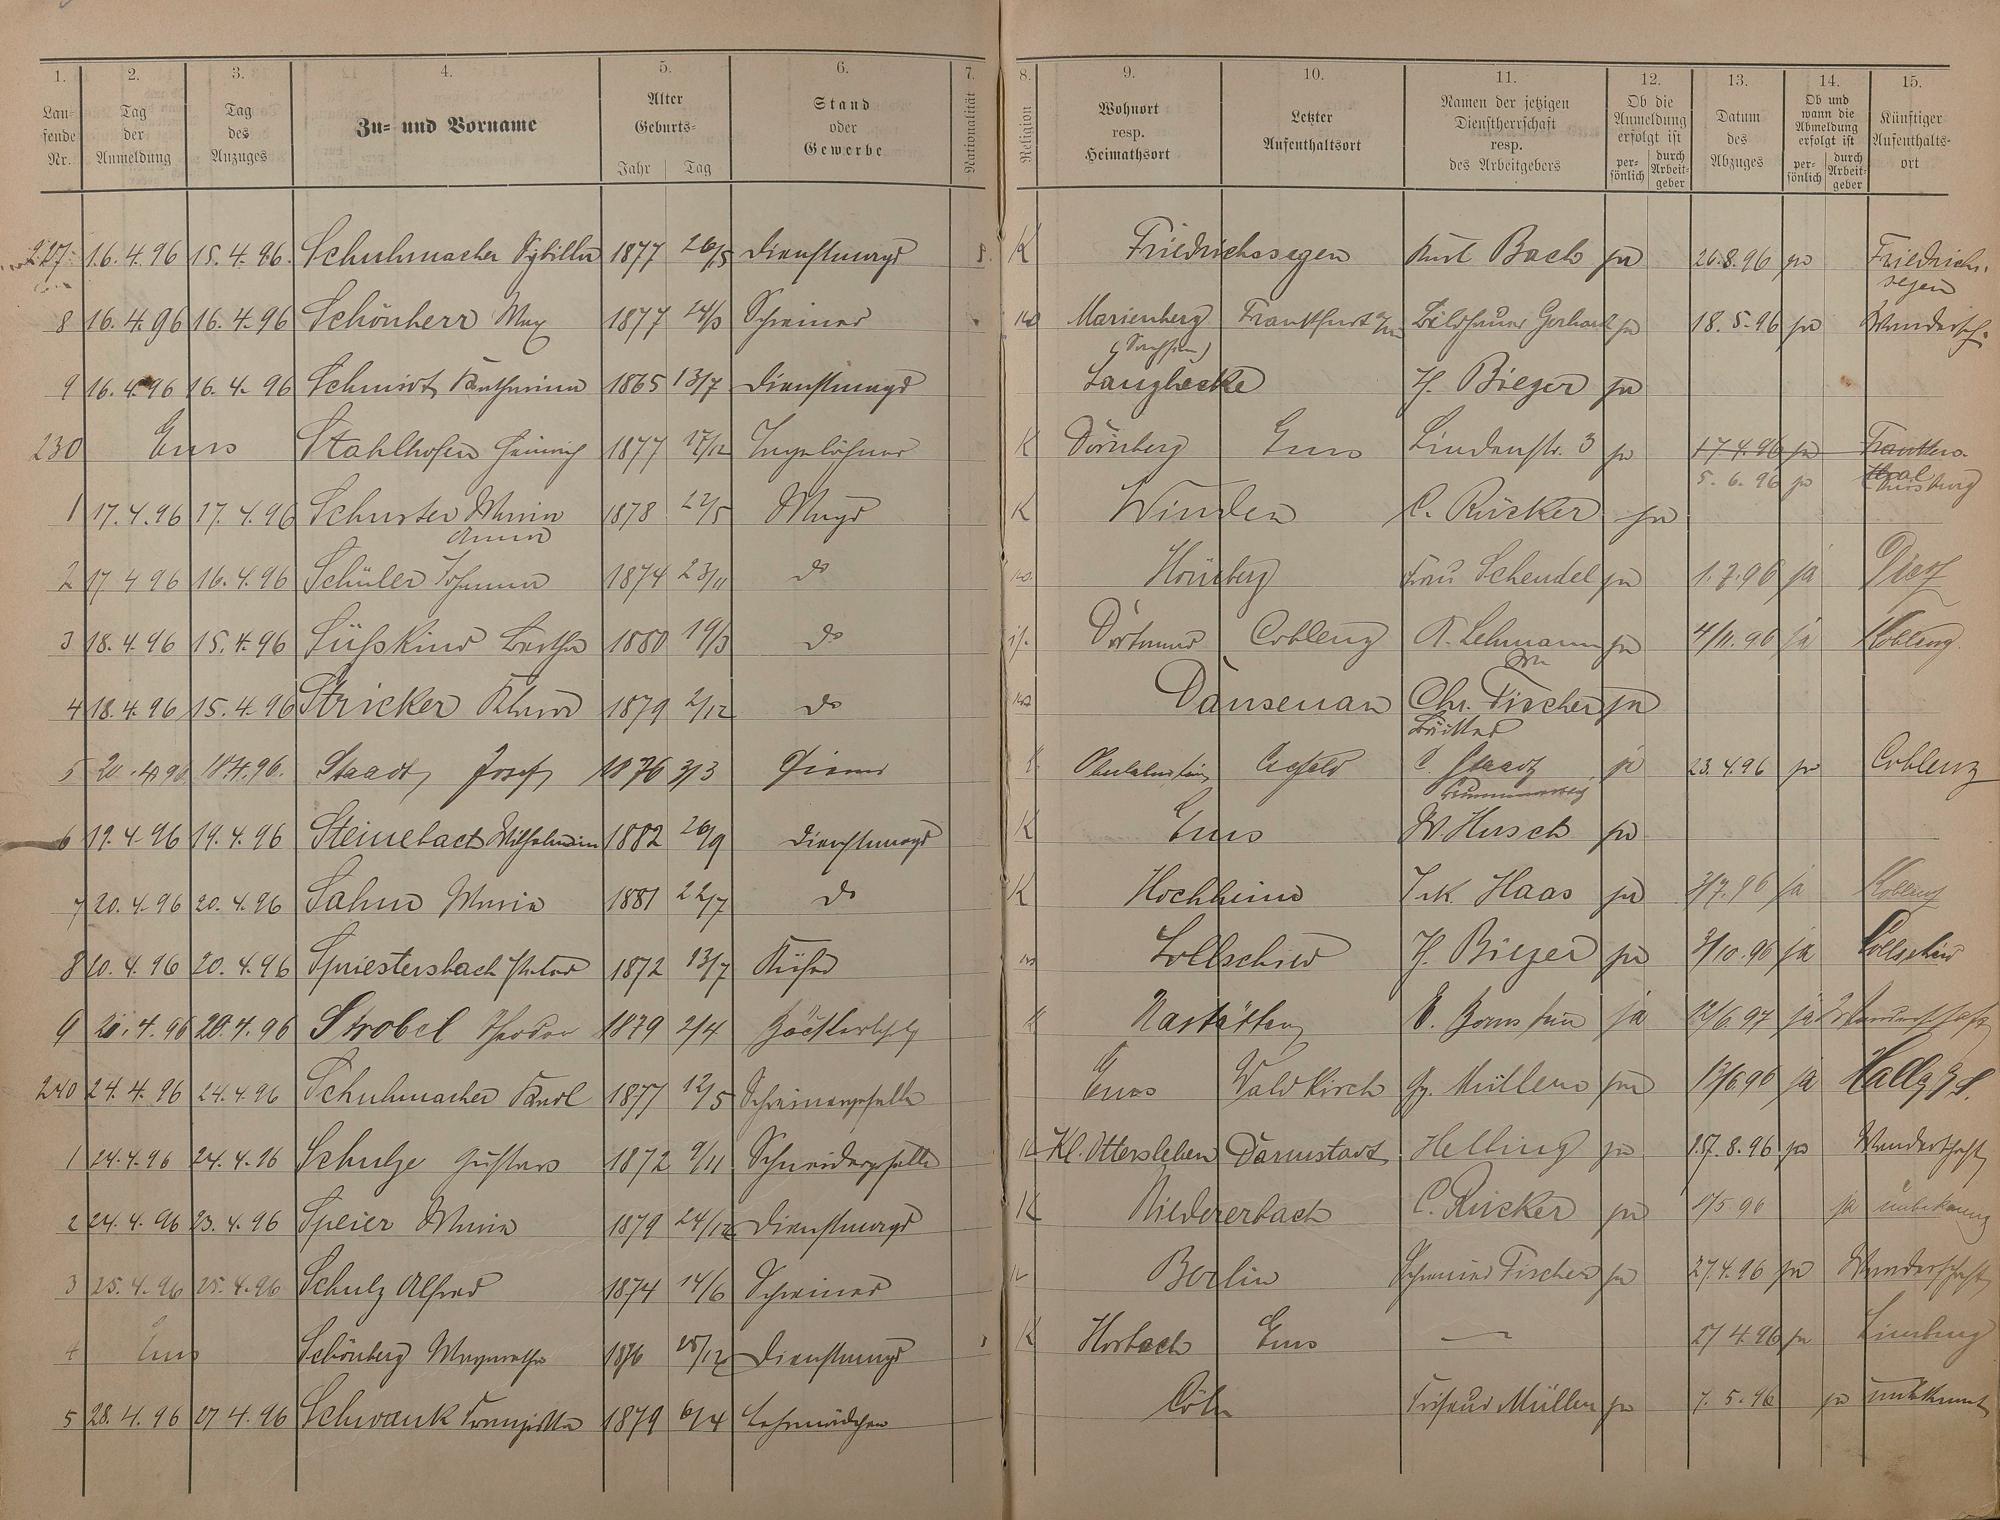 1. 2. 3. 4. 5. 6. 7. 8. 9. 10. 11. 12. 13. 14. 15.
Lau-
fende
Nr.
Tag
der
Anmeldung
Tag
des
Anzuges
Zu- und Vorname
Alter
Geburts-
Jahr Tag
Stand
oder
Gewerbe
Nationalität
Religion
Wohnort
resp.
Heimathsort
Letzter
Aufenthaltsort
Namen der jetzigen
Dienstherrschaft
resp.
des Arbeitgebers
Ob die
Anmeldung
erfolgt ist
per-
sönlich
durch
Arbeit-
geber
Datum
des
Abzuges
Ob und
wann die
Abmeldung
erfolgt ist
per-
sönlich
durch
Arbeit-
geber
Künftiger
Aufenthalts-
ort
227 16.4.96 15.4.96 Schuhmacher Sybilla 1877 26/5 Dienstmagd K Friedrichssegen Bach ja 26.8.96 ja Friedrichs-
segen
8 16.4.96 16.4.96 Schönherr Max 1877 24/3 Schreiner Marienberg Frankfurt a/m Bildhauer Gerhard ja 18.5.96 ja Wandersch.
(Sachsen)
9 16.4.96 16.4.96 Schmidt Katharina 1865 13/7 Dienstmagd Langhecke H. Bieger ja
230 Ems Stahlhofen Heinrich 1877 17/12 Tagelöhner K Dörnberg Ems Lindenstr. 3 ja 17.4.96 ja Franken-
thal
5.6.96 ja
1 17.4.96 17.4.96 Schuster Maria 1878 22/5 Magd K Winden C. Rücker ja
Anna
2 17 4 96 16.4.96 Schüler Johanna 1874 23/11 do Hömberg Frau Schendel ja 1.7.96 ja Diez
3 18.4.96 15.4.96 Süßkind Bertha 1880 19/3 do if. Dortmund Coblenz A. Lehmann ja 4/11.96 ja Koblenz
4 18.4.96 15.4.96 Stricker 1879 2/12 do Dausenau Chr. Fischer ja
5 20.4.96 18.4.96. Staadt Josef 1876 3/3 Diener K Oberlahnstein Crefeld C. Staadt ja 23.4.96 ja Coblenz
6 19.4.96 19.4.96 Steinebach Wilhelmine 1882 26/9 Dienstmagd K Ems W. Husch ja
7 20.4.96 20.4.96 Sahm Maria 1881 22/7 do K Hochheim Haas ja 3/7.96 ja Koblenz
8 20.4.96 20.4.96 Spriestersbach Peter 1872 13/7 Küfer Lollschied H. Bieger ja 3/10.96 ja Lollschied
9 20.4.96 20.4.96 Strobel Theodor 1879 2/4 K Nastätten E. Bornstein ja 12/6.97 ja Wanderschaft
240 24.4.96 24.4.96 Schuhmacher Karl 1877 12/5 Schreinergeselle Ems Waldkirch Müller ja ja Halle
1 24.4.96 24.4.96 Schulze Gustav 1872 9/11 Schneidergeselle Kl. Ottersleben Darmstadt Helbing ja 8.96 ja Wanderschaft
2 24.4.96 23.4.96 Speier Maria 1879 24/12 Dienstmagd K Niedererbach C. Rücker ja 1/5 96 ja unbekannt
3 25.4.96 25.4.96 Schulz Alfred 1874 14/6 Schreiner Berlin Schreiner Fischer ja 27.4.96 ja Wanderschaft
4 Ems Schönberg Margaretha 1876 25/12 Dienstmagd K Horbach Ems — 27 4.96 ja Limburg
5 28.4.96 27 4.96 Schwank Franziska 1879 6/4 Lehrmädchen Cöln Friseur Müller ja 7.5.96 ja unbekannt